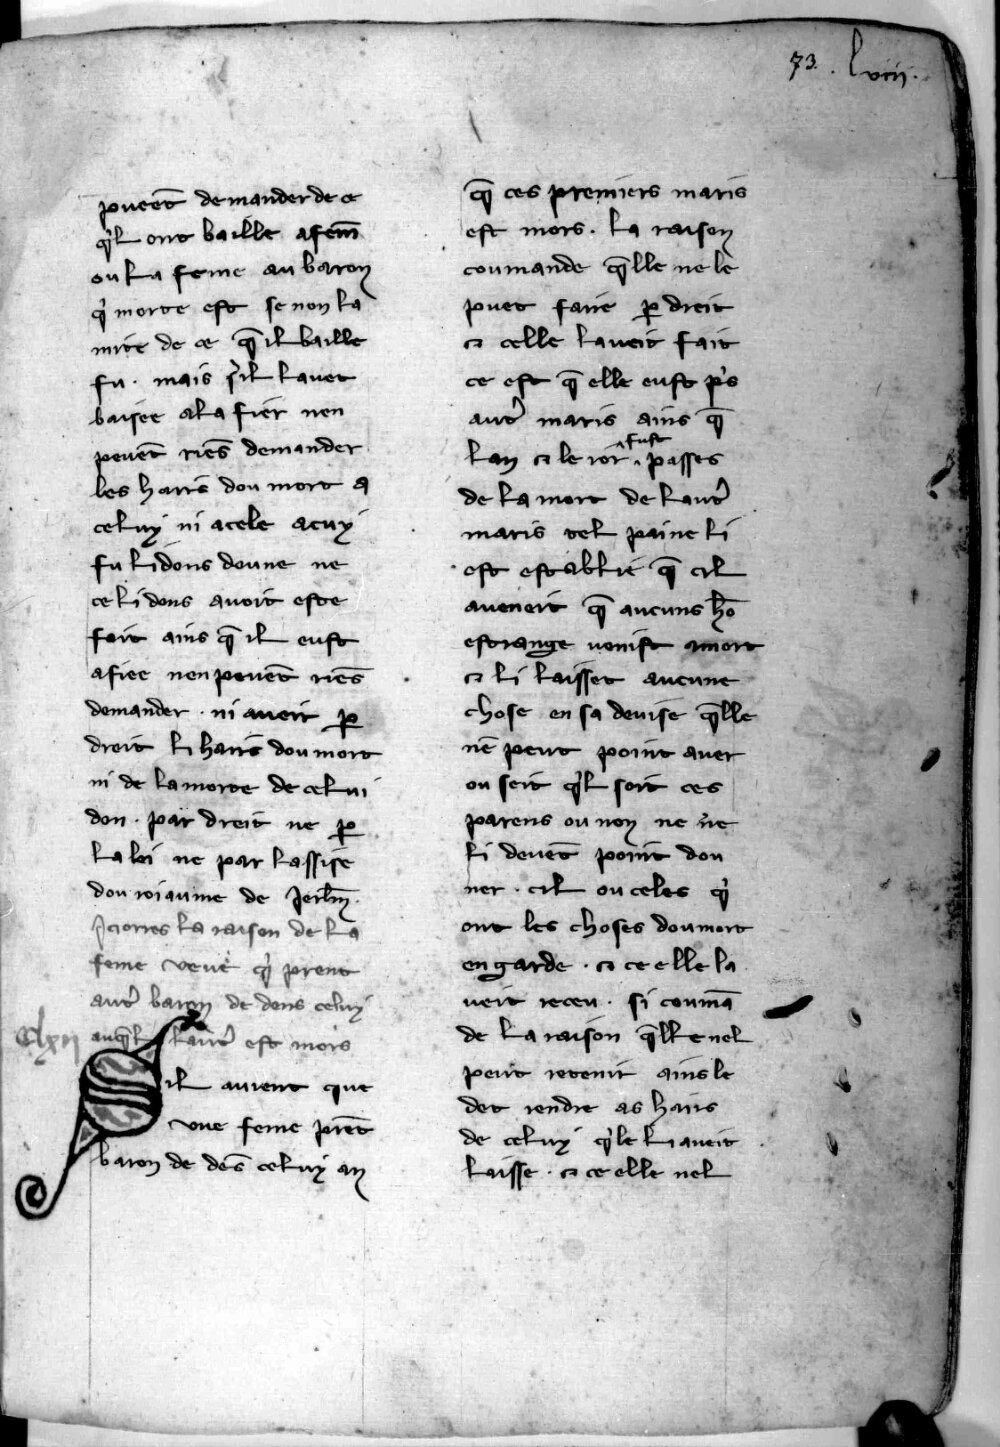 73. lxvii.
pueēt demander de ce
q̓l ont baille a femē
ou la feme au baron
q̓ morte est se non la
mite de ce q̄ il baille
fu · mais sil lauet
baisee a la fier nen
peuēt riēs demander
les hairs dou mort a
celuy ni a cele a cuy
fu li dons doune ne
ce li dons auoit este
fait ains q̄ il eust
afiee nen peuēt riēs
demander · ni aueir p̱
dreit li hairs dou mort
ni de la morte de celui
don · par dreit ne p̱
la lei ne par lassise
dou roiaume de Jerlm̄ ·
Ici orres la raison de la
feme veue q̓ prent
autˀ baron de dens celuy
Clxii
an q̄l lautˀ est mors
Sil auient que
vne feme prēt
baron de dēs celuy an
q̄ ces premiers maris
est mors · la raison
coumande q̄lle ne le
puet faire p̱ dreit
⁊ celle laueit fait
ce est q̄ elle eust p̓s
autˀ maris ains q̄
lan ⁊ le ior · fust passes
de la mort de lautˀ
maris tel paine li
est establie q̄ cil
aueneit q̄ aucuns hō
estrange venist a mort
⁊ li laisset aucune
chose en sa deuise q̄lle
nē peut point auer
ou seit q̓l soit ces
parens ou non ne ne
li deuēt point dou
ner · cil ou celes q̓
ont les choses dou mort
en garde · ⁊ ce elle la
ueit receu · si coumā
de la raison q̄lle nel
peut retenir ains le
det rendre as hairs
de celuy q̓ le li aueit
laisse · ⁊ ce elle nel